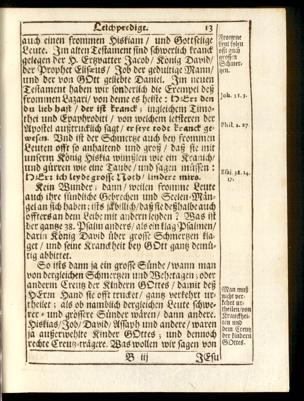 Leichpredigt. 13
auch einen frommen Hiskiam / und Gottselige
Leute. Im alten Testament sind schwerlich kranck
gelegen der H. Ertzvatter Jacob / König David /
der Prophet Elisæus / Job der gedultige Mann /
und der von GOtt geliebte Daniel. Im neuen
Testament haben wir sonderlich die Exempel deß
frommen Lazari / von deme es heißt: HErr den
du lieb hast / der ist kranck; ingleichem Timo-
thei und Epaphroditi / von welchem letsteren der
Apostel außtrucklich sagt / er seye todt kranck ge-
wesen. Und ist der Schmertze auch bey frommen
Leuten offt so anhaltend und groß / daß sie mit
unserm König Hiskia winßlen wie ein Kranich /
und gürren wie eine Taube / und sagen müssen:
HErr ich leyde grosse Noth / lindere mirs.
Kein Wunder; dann / weilen fromme Leute
auch ihre sündliche Gebrechen und Seelen-Män-
gel an sich haben: ists ja billich / daß sie deßhalbe auch
öffters an dem Leibe mit andern leyden? Was ist
der gantze 38. Psalm anders / als ein klag Psalmen /
darin König David über grosse Schmertzen kla-
get / und seine Kranckheit bey GOtt gantz demü-
tig abbittet.
So ists dann ja ein grosse Sünde / wann man
von dergleichen Schmertzen und Wehtagen / oder
anderm Creutz der Kindern GOttes / damit deß
HErrn Hand sie offt trucket / gantz verkehrt ur-
theilet: als ob namblich dergleichen Leute schwe-
rer- und grössere Sünder wären / dann andere.
Hiskias / Job / David / Assaph und andere / waren
ja außerwehlte Kinder GOttes; und dennoch
rechte Creutz-trägere. Was wollen wir sagen von
B iij JEsu
Fromme
seyn
offt auch
grossen
Schmer-
tzen.
Joh. 11. 3.
Phil. 2. 27
Esai. 38. 14.
17.
Man muß
nicht ver-
kehrt ur-
theilen / von
Kranckhei-
ten und
dem Creutz
der Kindern
GOttes.